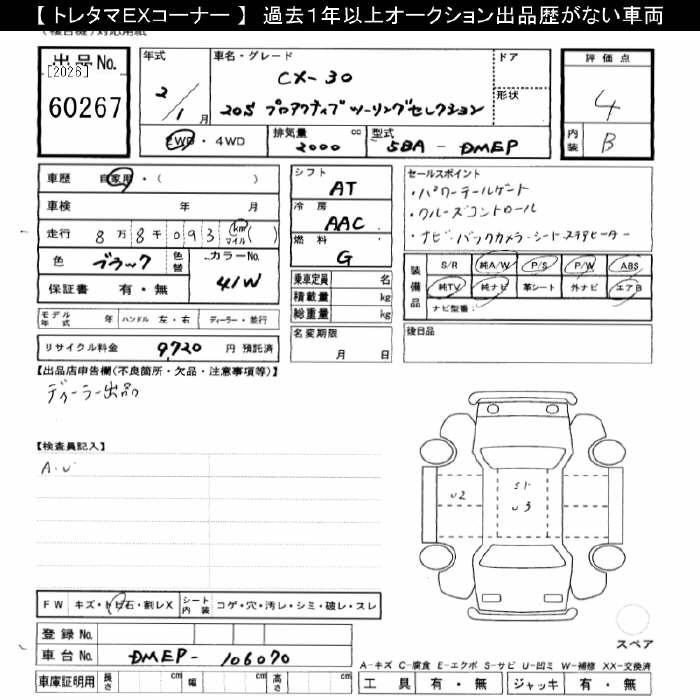 【 トレタマEXコーナー 】 過去1年以上オークション出品歴がない車両
出品No. [2026] 60267
年式 2/1月
車名・グレード CX-30
20S プロアクティブツーリングセレクション
ドア
形状
評価点 4
内装 B
2WD・4WD 排気量 2000 cc 型式 5BA - DMEP
車歴 自家用・( )
車検 年 月
走行 8万8千093 km マイル ( )
色 ブラック 色替 カラーNo. 41W
保証書 有・無
モデル年式 年 ハンドル 左・右 ディーラー・並行
リサイクル料金 9720 円 預託済
シフト AT
冷房 AAC
燃料 G
乗車定員 名
積載量 kg
総重量 kg
名変期限 月 日
セールスポイント
・パワーテールゲート
・クルーズコントロール
・ナビ・バックカメラ・シート・ステアヒーター
装備品 S/R 純A/W P/S P/W ABS
純TV 純ナビ 革シート 外ナビ エアB
ナビ型番:
後日品
【出品店申告欄(不良箇所・欠品・注意事項等)】
ディーラー出品
【検査員記入】
A.U
U2 S1
U3
FW キズ・トビ石・割レX シート内装 コゲ・穴・汚レ・シミ・破レ・スレ
登録No.
車台No. DMEP - 106070
車庫証明用 長さ cm 幅 cm 高さ cm
スペア
A-キズ C-腐食 E-エクボ S-サビ U-凹ミ W-補修 XX-交換済
工具 有・無 ジャッキ 有・無